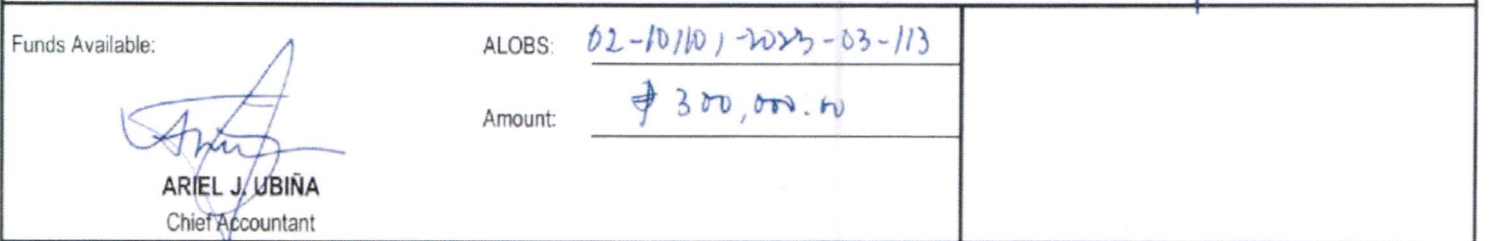 Funds Available:
ALOBS: 02-101101-2023-03-113
Amount: ₱ 300,000.00
ARIEL J. UBIÑA
Chief Accountant